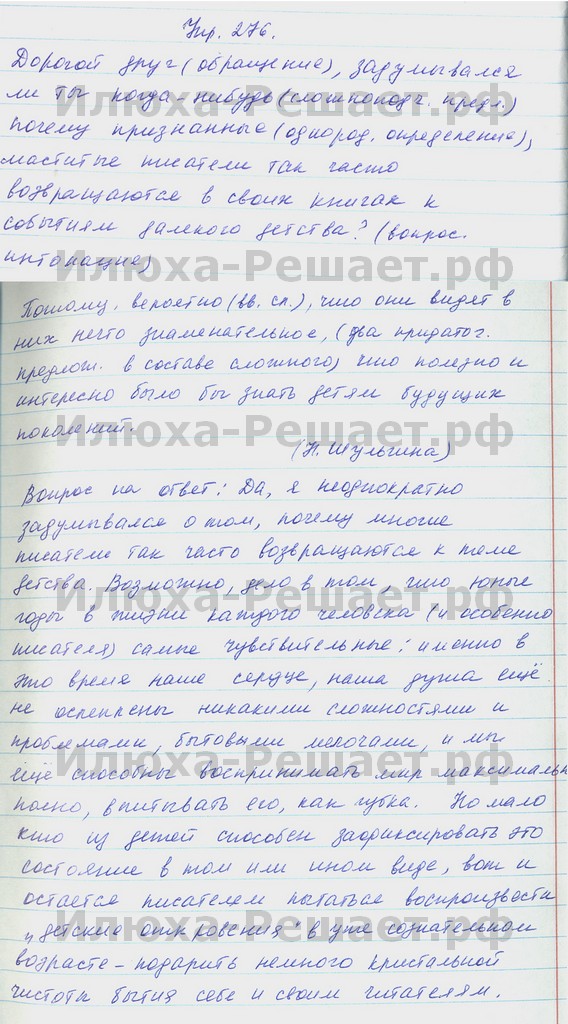 Упр. 276.
Дорогой друг (обращение), задумывался
ли ты когда-нибудь (сложноподч. предл.)
Илюха-Решает.рф
почему признанные (однород. определение),
маститые писатели так часто
возвращаются в своих книгах к
событиям далекого детства? (вопрос.
Илюха-Решает.рф
интонация)
Потому, вероятно (вв. сл.), что они видят в
них нечто знаменательное, (два придаточ.
предлож. в составе сложного) что полезно и
интересно было бы знать детям будущих
Илюха-Решает.рф
поколений.
(Н. Шульгина)
Вопрос на ответ: Да, я неоднократно
задумывался о том, почему многие
писатели так часто возвращаются к теме
детства. Возможно, дело в том, что юные
Илюха-Решает.рф
годы в жизни каждого человека (и особенно
писателя) самые чувствительные: именно в
это время наше сердце, наша душа ещё
не ослеплены никакими сложностями и
проблемами, бытовыми мелочами, и мы
Илюха-Решает.рф
ещё способны воспринимать мир максимально
полно, впитывать его, как губка. Но мало
кто из детей способен зафиксировать это
состояние в том или ином виде, вот и
остается писателем пытаться воспроизвести
Илюха-Решает.рф
„детские откровения" в уже сознательном
возрасте - подарить немного кристальной
чистоты бытия себе и своим читателям.